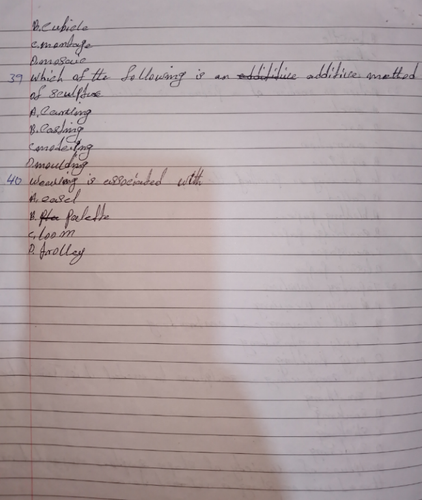 B. Cubicle
C. montage
D. mosaic
39 Which of the following is an additive method
of sculpture
A. Carving
B. Casting
C. modelling
D. moulding
40 Weaving is associated with
A. easel
B. Palette
C. loom
D. trolley